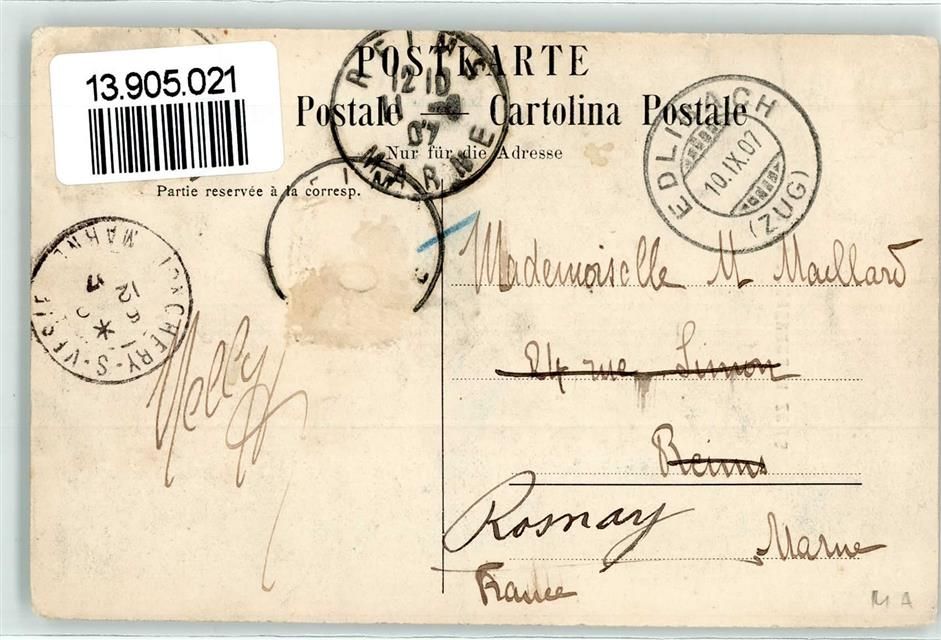 13.905.021
POSTKARTE
Postale — Cartolina Postale
Nur für die Adresse
Partie reservée à la corresp.
REIMS
12 10
11
07
MARNE
EDLIBACH
10.IX.07
(ZUG)
JONCHERY-S-VESLE
MARNE
12
Mademoiselle M Maillard
24 rue Simon
Reims
Rosnay
Marne
France
Nelly
MA